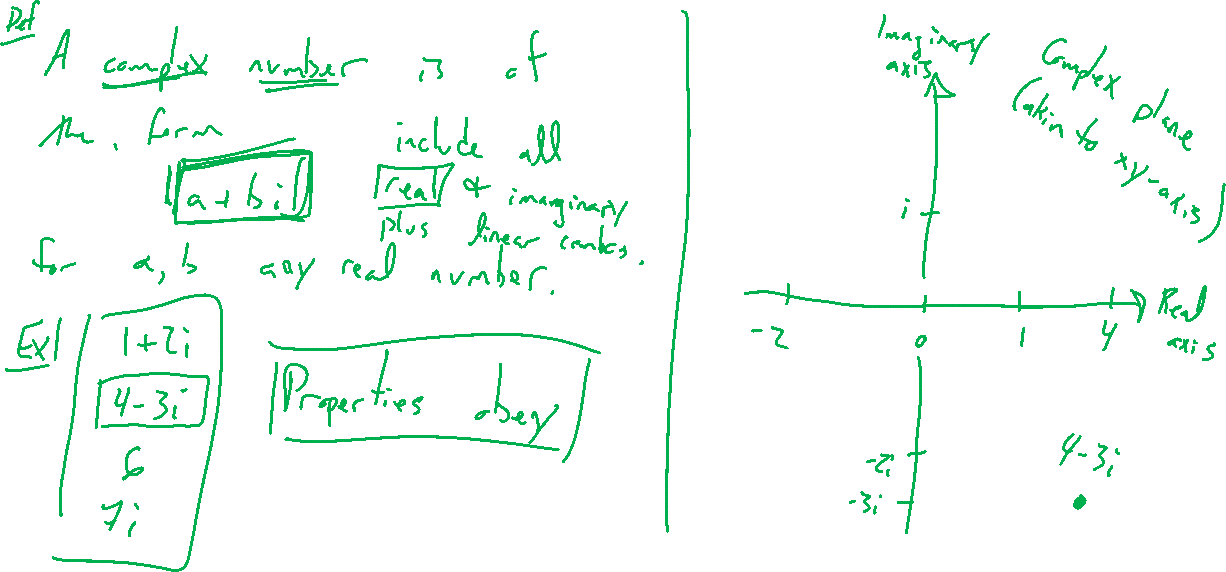 Def
A complex number is of
the form
a + bi
include all
real & imaginary
plus linear combos.
for a, b any real number.
Ex
1+2i
4-3i
6
7i
Properties obey
Imaginary
axis
Complex plane
(akin to xy-axis)
i
-2 0 1 4
Real
axis
-2i
-3i
4-3i